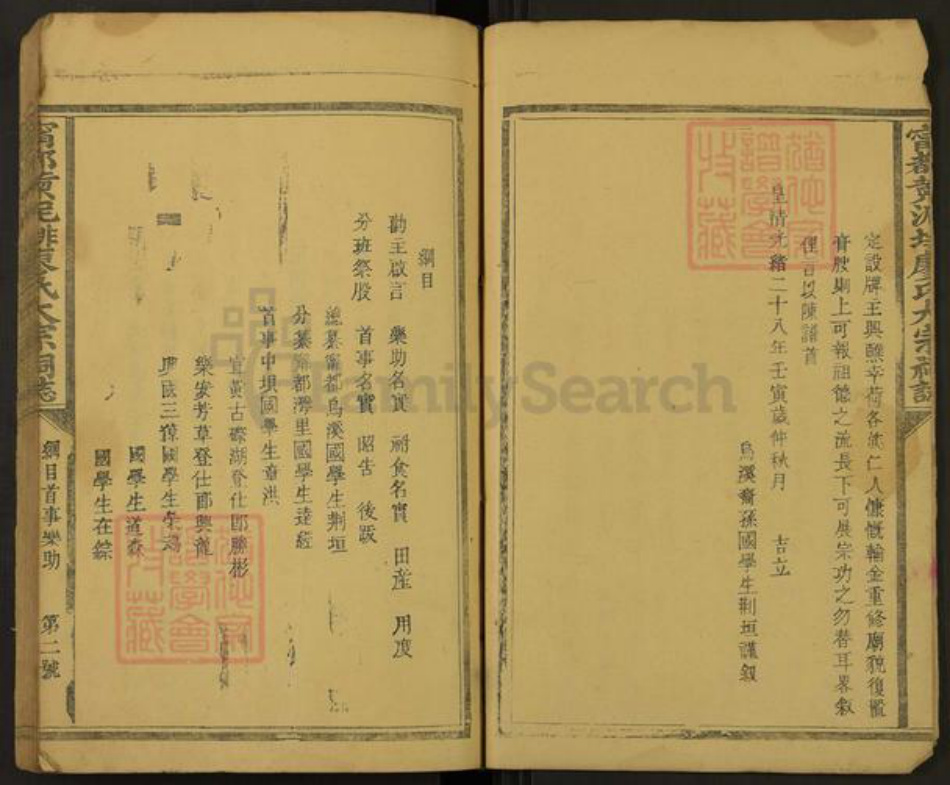 寧都黃泥排廖氏大宗祠誌
定設牌主興醮幸荷各族仁人慷慨輸金重修廟貌復置
膏腴則上可報祖德之流長下可展宗功之勿替耳畧敘
俚言以陳諸首
皇清光緒二十八年壬寅歲仲秋月 吉立
烏溪裔孫國學生荆垣謹叙
綱目
勸主啟言 樂助名實 祔食名實 田產 用度
分班祭股 首事名實 昭告 後跋
總纂寧都烏溪國學生荆垣
分纂寧都灣里國學生達
首事中壩國學生章洪
宜黃古磜湖登仕郎勝彬
樂安芳草登仕郎興龍
國學生
國學生道森
國學生在綜
寧都黃泥排廖氏大宗祠誌
綱目首事樂助
第二號
FamilySearch